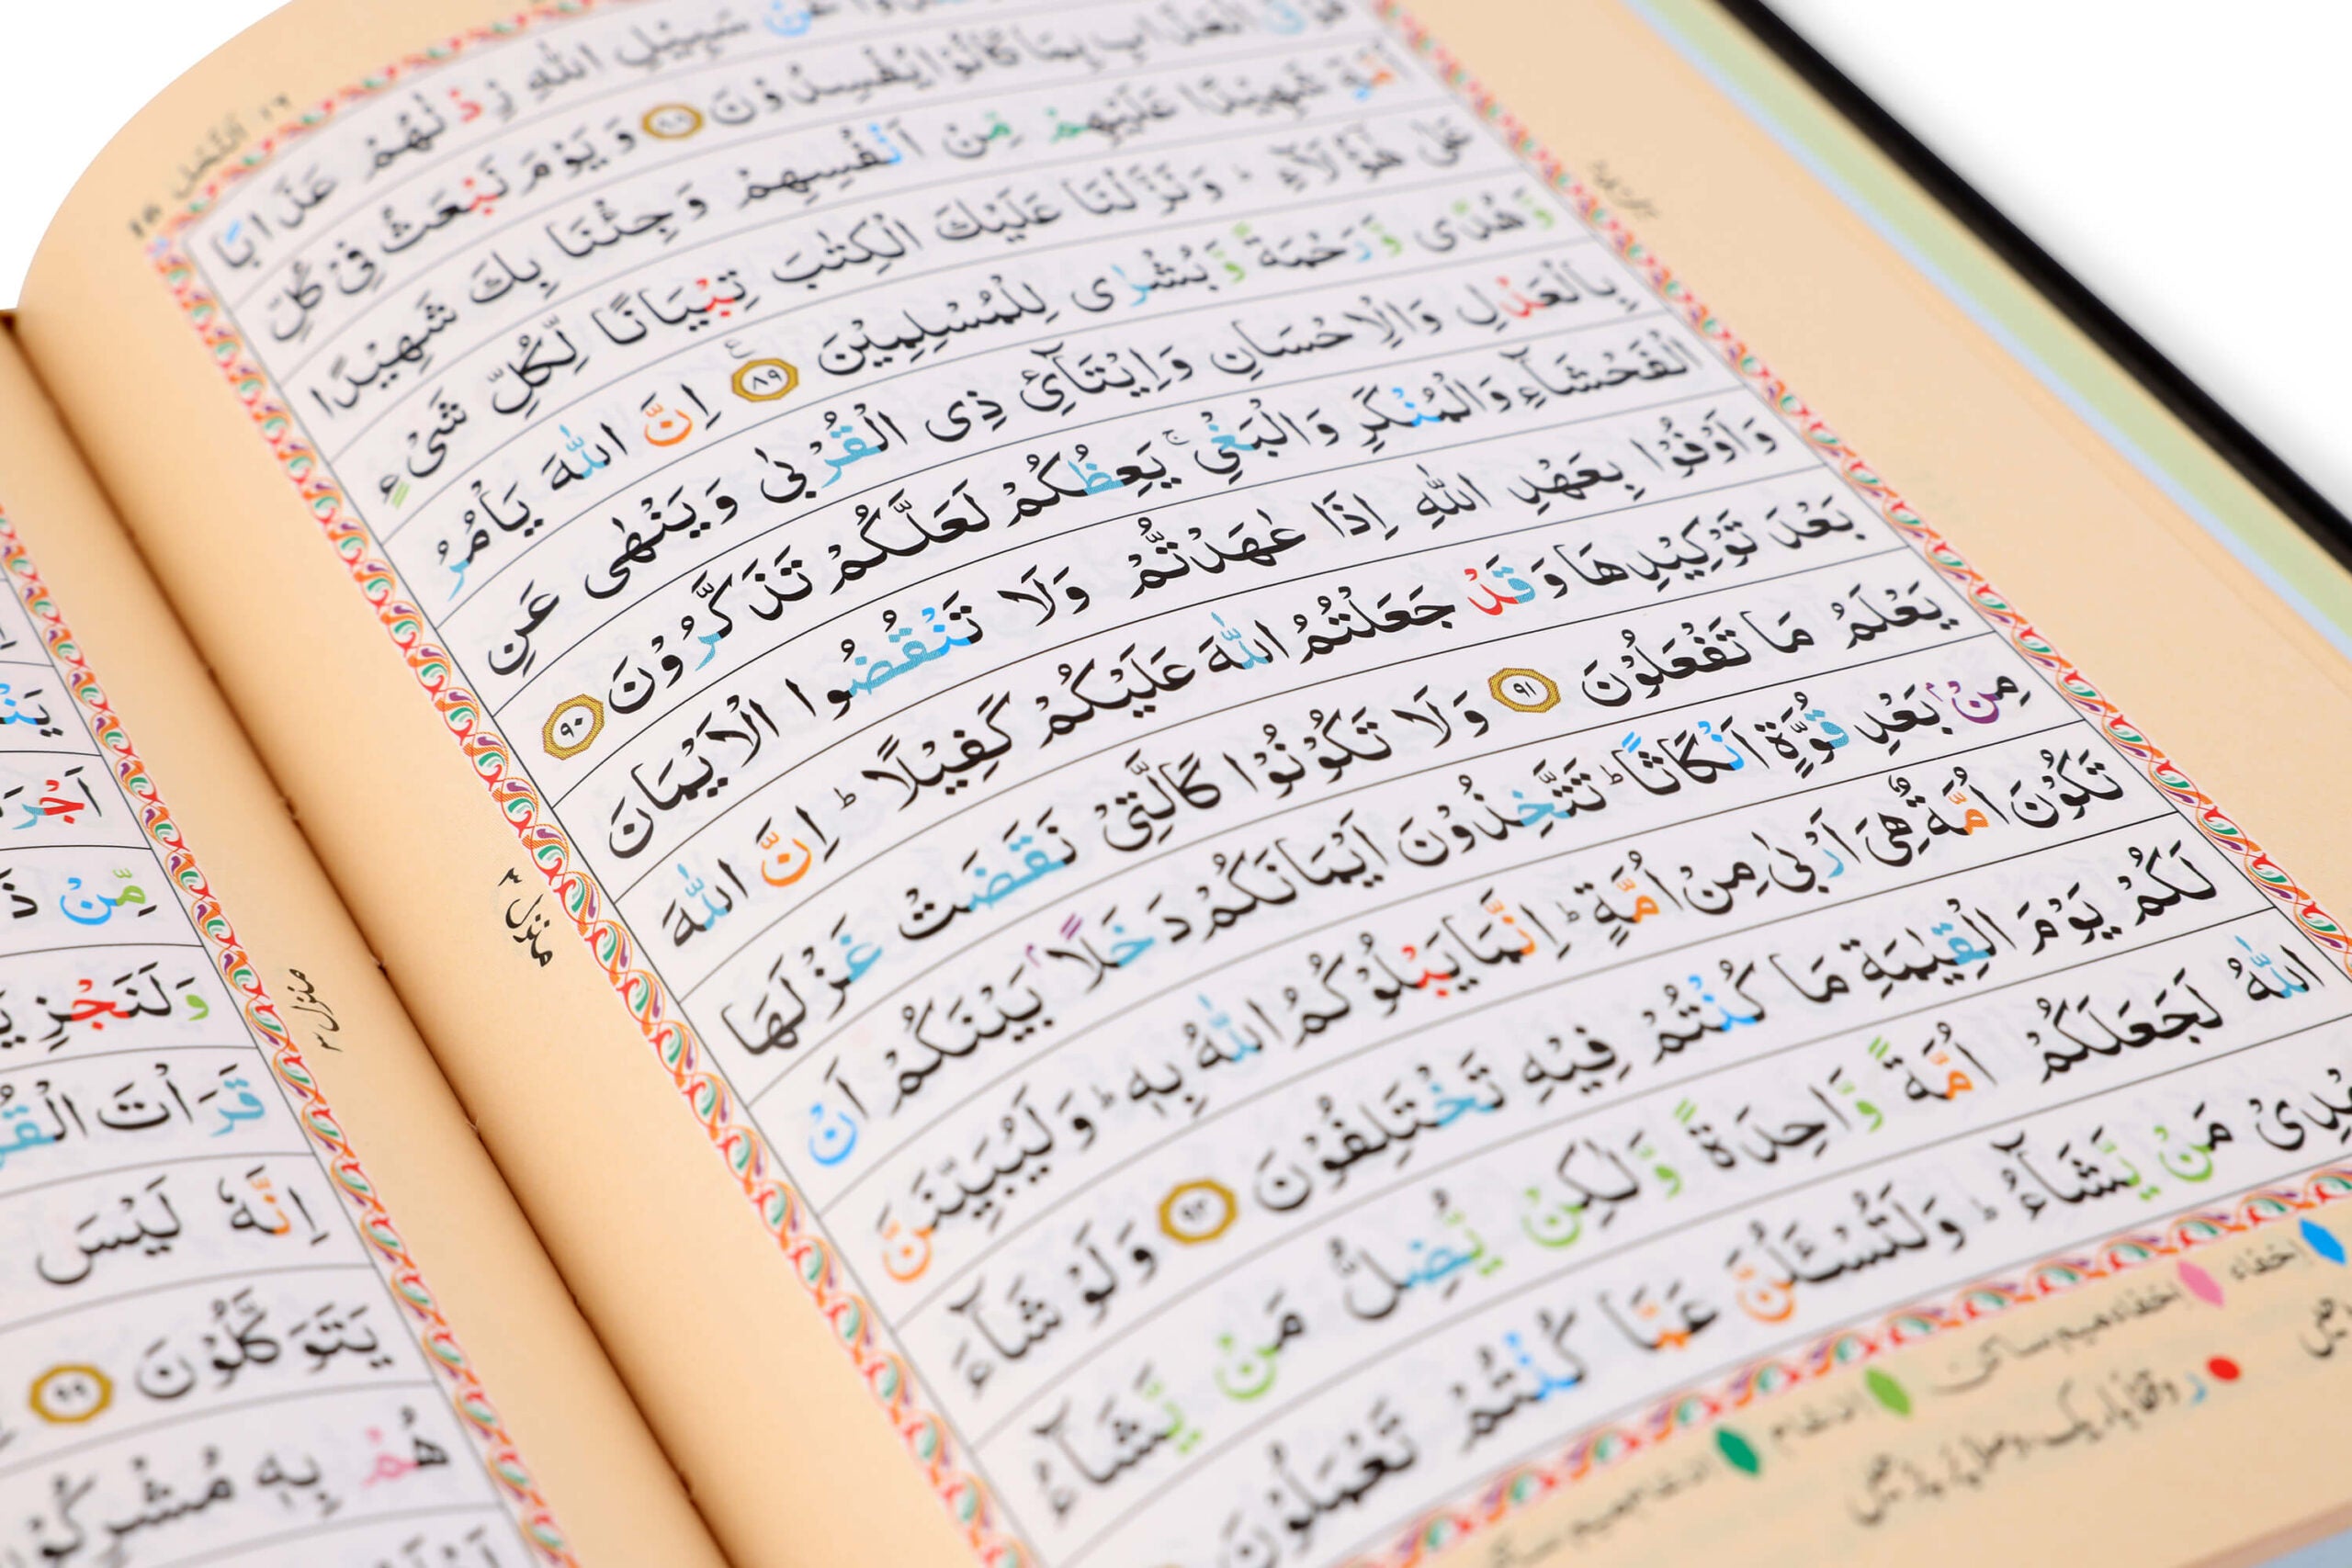 النحل ١٦
سَبِيْلِ اللّٰهِ زِدْنٰهُمْ عَذَابًا
الْعَذَابِ بِمَا كَانُوْا يُفْسِدُوْنَ ﴿٨٨﴾ وَيَوْمَ نَبْعَثُ فِىْ كُلِّ
اُمَّةٍ شَهِيْدًا عَلَيْهِمْ مِّنْ اَنْفُسِهِمْ وَجِئْنَا بِكَ شَهِيْدًا
عَلٰى هٰٓؤُلَآءِ ؕ وَنَزَّلْنَا عَلَيْكَ الْكِتٰبَ تِبْيَانًا لِّكُلِّ شَىْءٍ
وَّهُدًى وَّرَحْمَةً وَّبُشْرٰى لِلْمُسْلِمِيْنَ ﴿٨٩﴾ اِنَّ اللّٰهَ يَاْمُرُ
بِالْعَدْلِ وَالْاِحْسَانِ وَاِيْتَآئِ ذِى الْقُرْبٰى وَيَنْهٰى عَنِ
الْفَحْشَآءِ وَالْمُنْكَرِ وَالْبَغْىِ ۚ يَعِظُكُمْ لَعَلَّكُمْ تَذَكَّرُوْنَ ﴿٩٠﴾
وَاَوْفُوْا بِعَهْدِ اللّٰهِ اِذَا عٰهَدْتُّمْ وَلَا تَنْقُضُوا الْاَيْمَانَ
بَعْدَ تَوْكِيْدِهَا وَقَدْ جَعَلْتُمُ اللّٰهَ عَلَيْكُمْ كَفِيْلًا ؕ اِنَّ اللّٰهَ
يَعْلَمُ مَا تَفْعَلُوْنَ ﴿٩١﴾ وَلَا تَكُوْنُوْا كَالَّتِىْ نَقَضَتْ غَزْلَهَا
مِنْۢ بَعْدِ قُوَّةٍ اَنْكَاثًا ؕ تَتَّخِذُوْنَ اَيْمَانَكُمْ دَخَلًاۢ بَيْنَكُمْ اَنْ
تَكُوْنَ اُمَّةٌ هِىَ اَرْبٰى مِنْ اُمَّةٍ ؕ اِنَّمَا يَبْلُوْكُمُ اللّٰهُ بِهٖ ؕ وَلَيُبَيِّنَنَّ
لَكُمْ يَوْمَ الْقِيٰمَةِ مَا كُنْتُمْ فِيْهِ تَخْتَلِفُوْنَ ﴿٩٢﴾ وَلَوْ شَآءَ
اللّٰهُ لَجَعَلَكُمْ اُمَّةً وَّاحِدَةً وَّلٰكِنْ يُّضِلُّ مَنْ يَّشَآءُ
مَنْ يَّشَآءُ ؕ وَلَتُسْئَلُنَّ عَمَّا كُنْتُمْ تَعْمَلُوْنَ
منزل ٣
اخفاء
اخفاء میم ساکن
ادغام
منزل ٣
مِّنْ
وَلَنَجْزِ
اِنَّهٗ لَيْسَ
يَتَوَكَّلُوْنَ ﴿٩٩﴾
هُمْ بِهٖ